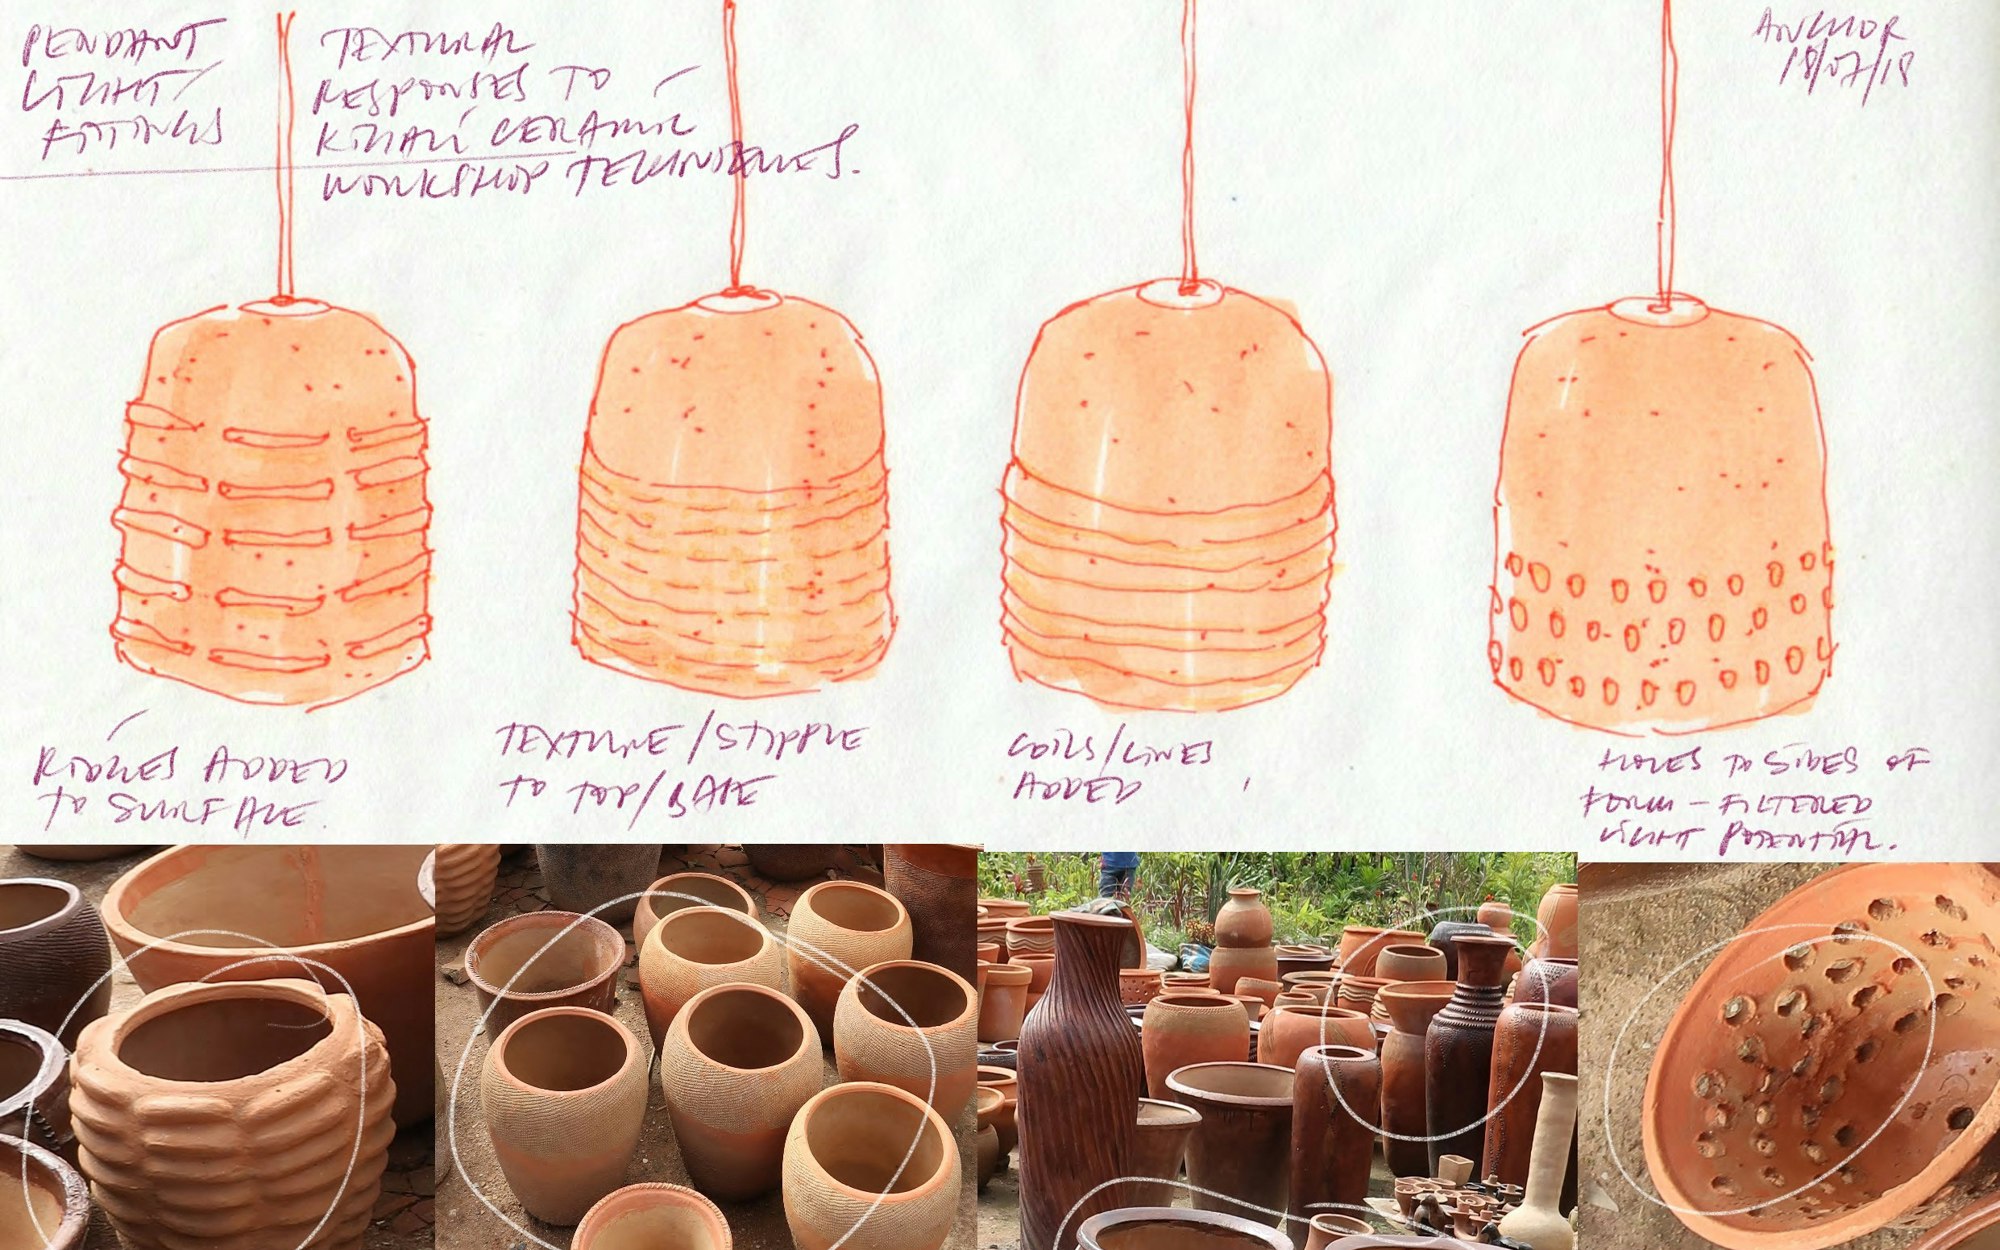 PENDANT
LIGHT
FITTINGS
TEXTURAL
RESPONSES TO
KIGALI CERAMIC
WORKSHOP TECHNIQUES.
18/07/18
RIDGES ADDED
TO SURFACE.
TEXTURE/STIPPLE
TO TOP/BASE
COILS/LINES
ADDED
HOLES TO SIDES OF
FORM - FILTERED
LIGHT POTENTIAL.